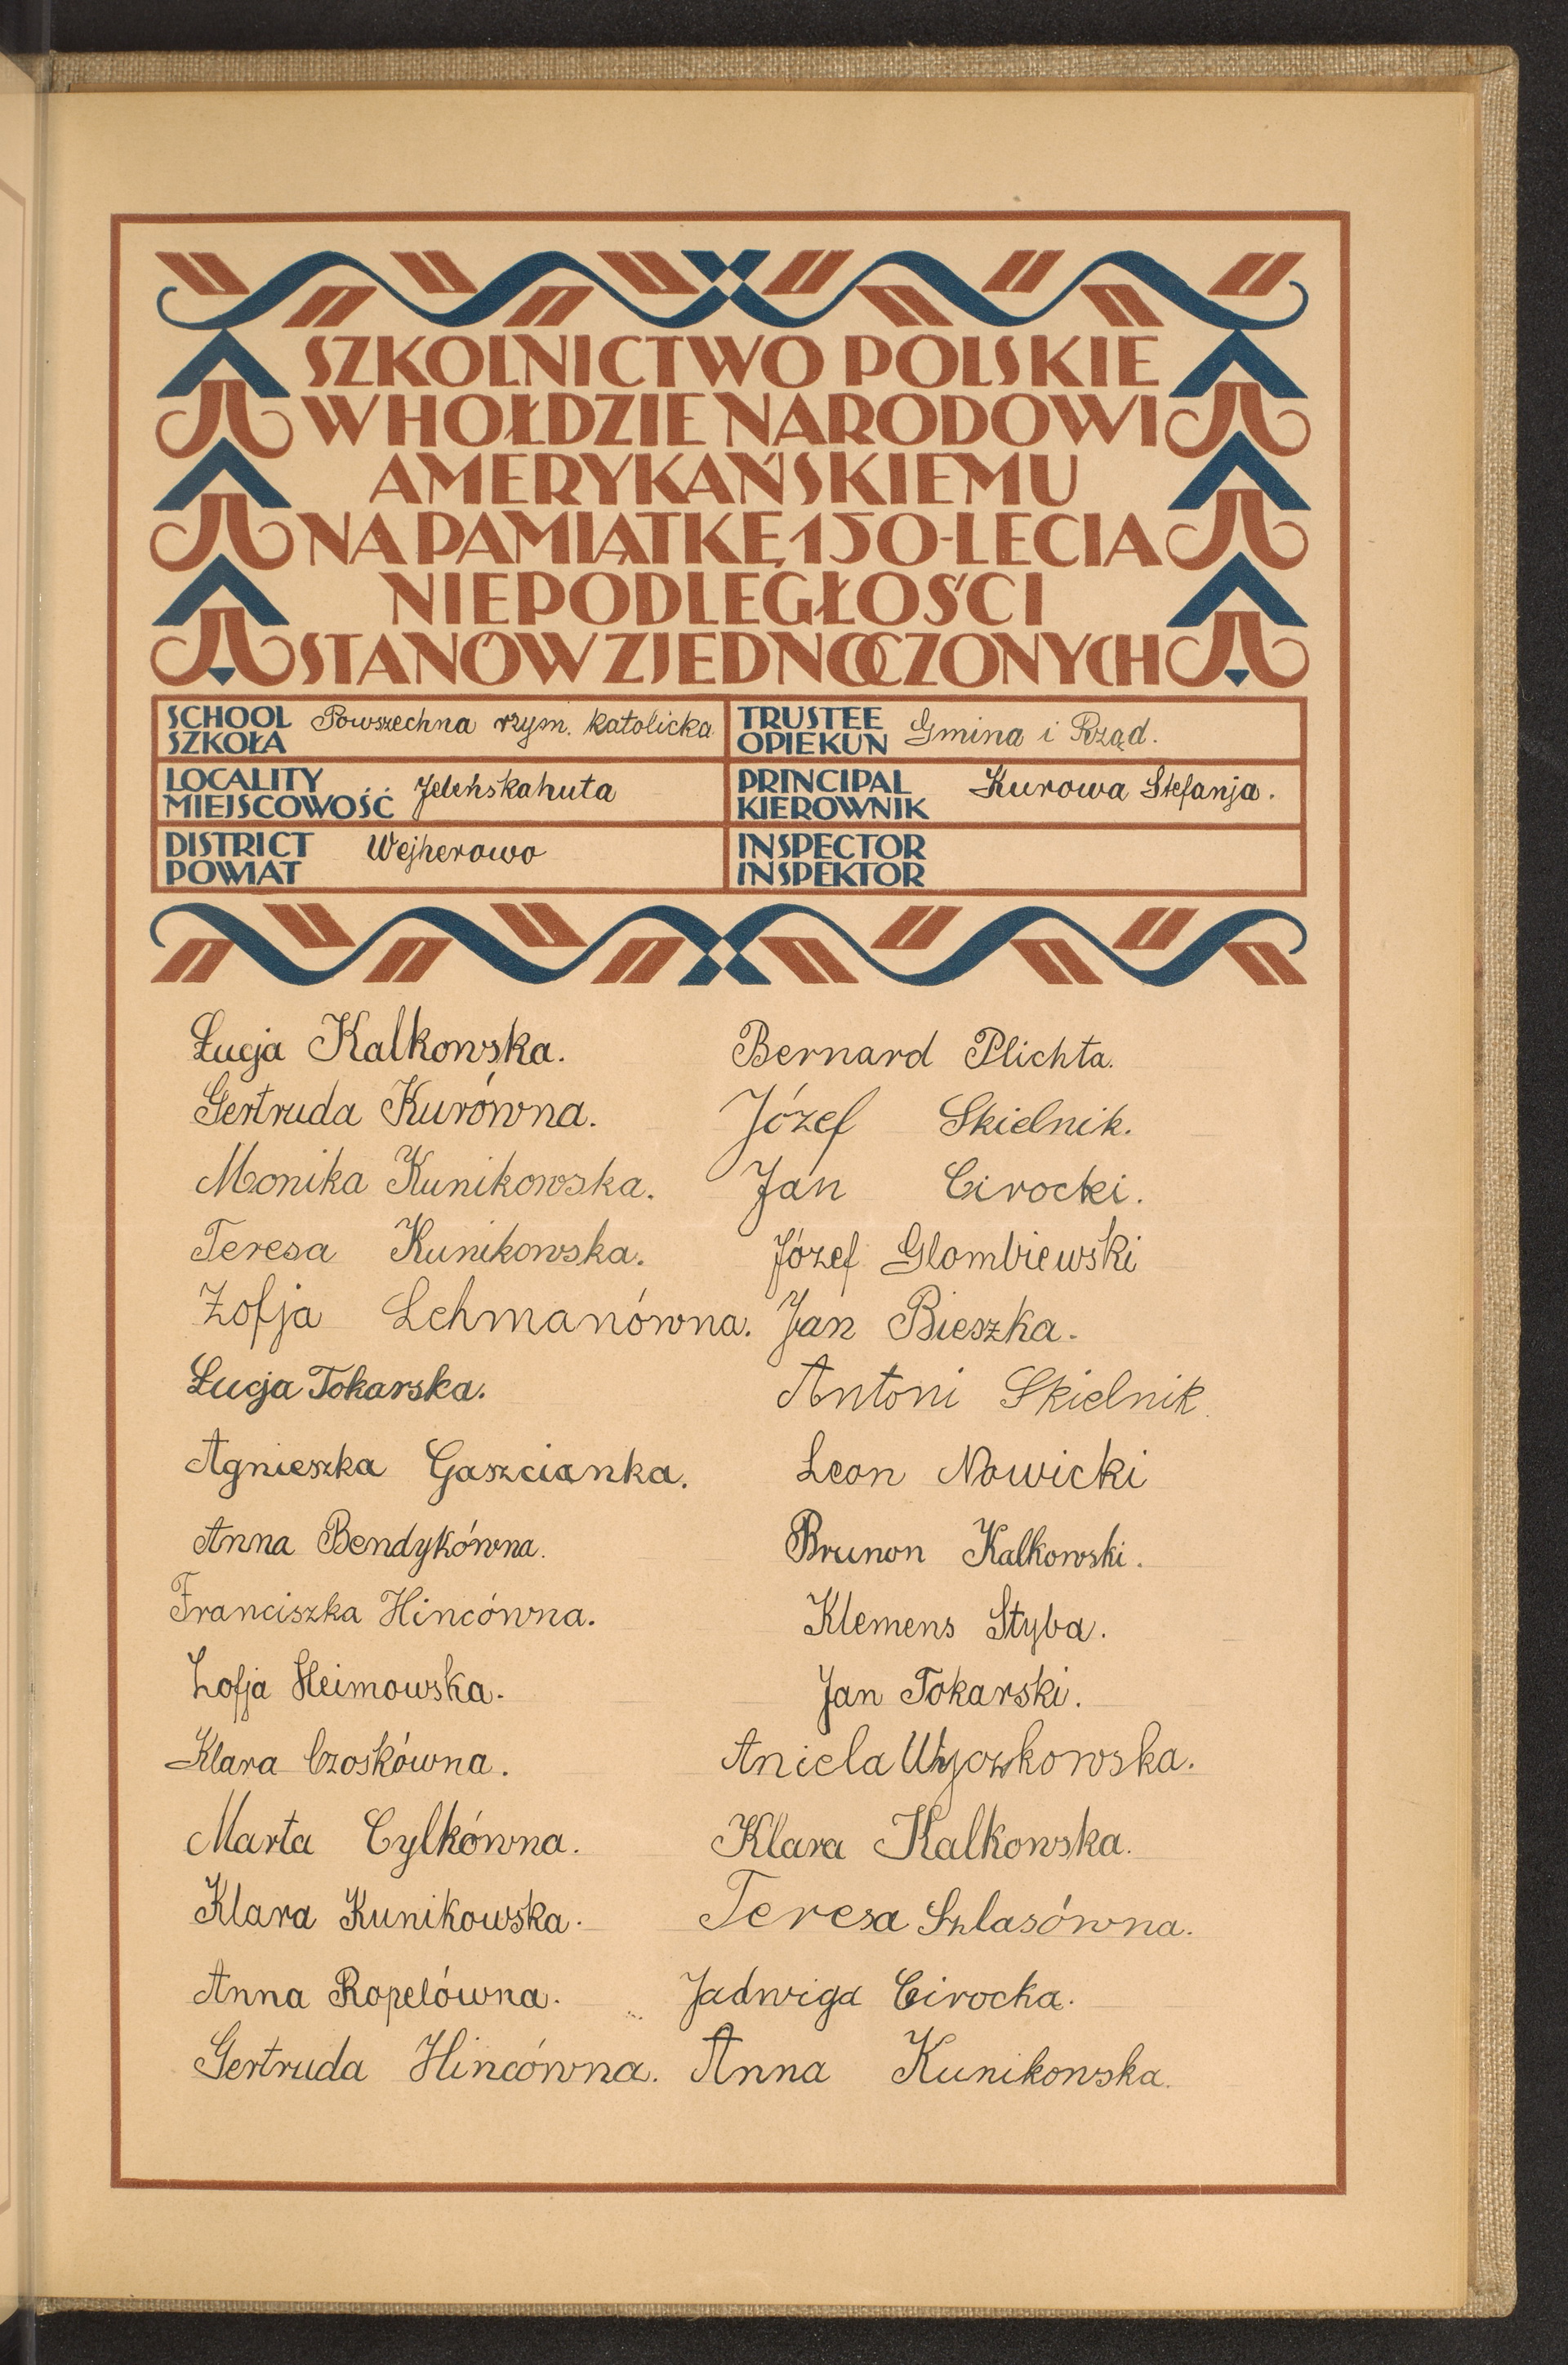 SZKOLNICTWO POLSKIE
W HOŁDZIE NARODOWI
AMERYKAŃSKIEMU
NA PAMIĄTKĘ 150-LECIA
NIEPODLEGŁOŚCI
STANÓW ZJEDNOCZONYCH
SCHOOL
SZKOŁA
Powszechna rzym. katolicka
TRUSTEE
OPIEKUN
Gmina i Rząd.
LOCALITY
MIEJSCOWOŚĆ
Jeleńskahuta
PRINCIPAL
KIEROWNIK
Kurowa Stefanja.
DISTRICT
POWIAT
Wejherowo
INSPECTOR
INSPEKTOR
Łucja Kalkowska.
Gertruda Kurówna.
Monika Kunikowska.
Teresa Kunikowska.
Zofja Lehmanówna.
Łucja Tokarska.
Agnieszka Gaszcianka.
Anna Bendykówna.
Franciszka Hincówna.
Zofja Heimowska.
Klara Czoskówna.
Marta Cylkówna.
Klara Kunikowska.
Anna Ropelówna.
Gertruda Hincówna.
Bernard Plichta.
Józef Skielnik.
Jan Cirocki.
Józef Glombiewski
Jan Bieszka.
Antoni Skielnik.
Leon Nowicki
Brunon Kalkowski.
Klemens Styba.
Jan Tokarski.
Aniela
Klara Kalkowska.
Teresa Szlasówna.
Jadwiga Cirocka.
Anna Kunikowska.